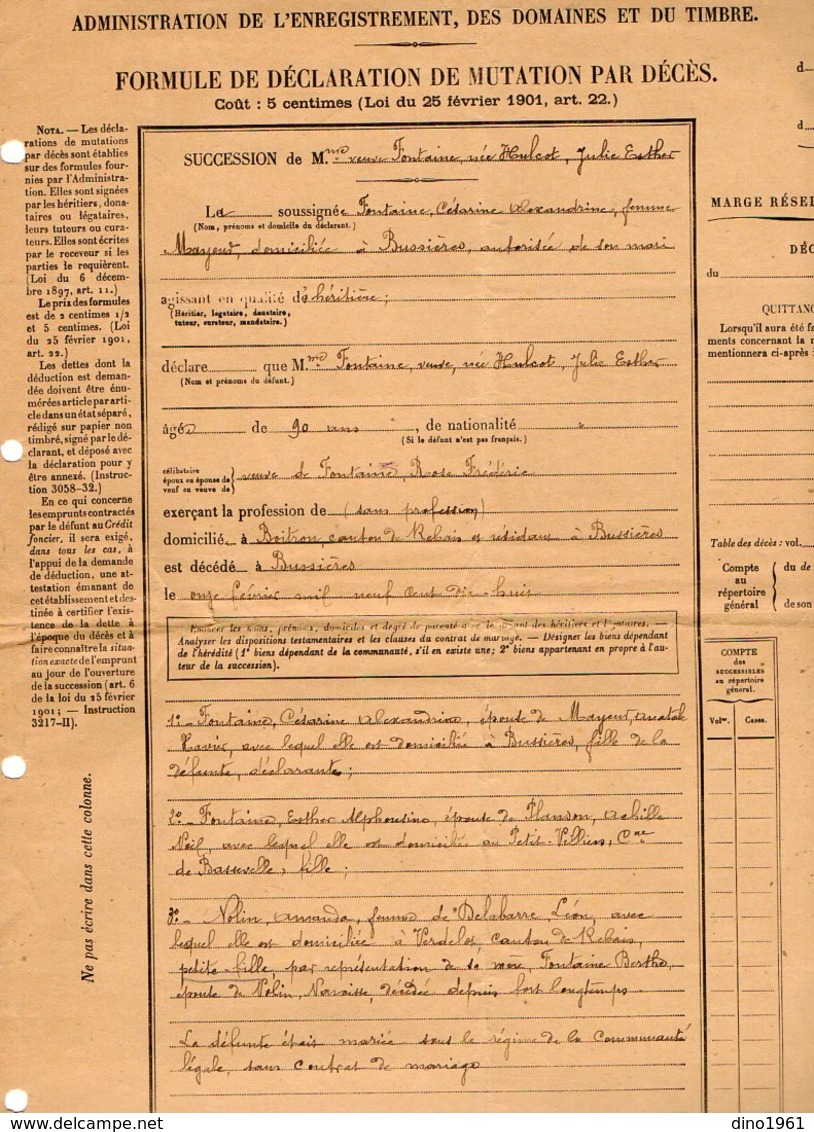 ADMINISTRATION DE L'ENREGISTREMENT, DES DOMAINES ET DU TIMBRE.
FORMULE DE DÉCLARATION DE MUTATION PAR DÉCÈS.
Coût : 5 centimes (Loi du 25 février 1901, art. 22.)
NOTA. — Les décla-
rations de mutations
par décès sont établies
sur des formules four-
nies par l'Administra-
tion. Elles sont signées
par les héritiers, dona-
taires ou légataires,
leurs tuteurs ou cura-
teurs. Elles sont écrites
par le receveur si les
parties le requièrent.
(Loi du 6 décem-
bre 1897, art. 11.)
Le prix des formules
est de 2 centimes 1/2
et 5 centimes. (Loi
du 25 février 1901,
art. 22.)
Les dettes dont la
déduction est deman-
dée doivent être énu-
mérées article par arti-
cle dans un état séparé,
rédigé sur papier non
timbré, signé par le dé-
clarant, et déposé avec
la déclaration pour y
être annexé. (Instruc-
tion 3058-32.)
En ce qui concerne
les emprunts contractés
par le défunt au Crédit
foncier, il sera exigé,
dans tous les cas, à
l'appui de la demande
de déduction, une at-
testation émanant de
cet établissement et des-
tinée à certifier l'exis-
tence de la dette à
l'époque du décès et à
faire connaître la situa-
tion exacte de l'emprunt
au jour de l'ouverture
de la succession (art. 6
de la loi du 25 février
1901; — Instruction
3217-II).
Ne pas écrire dans cette colonne.
SUCCESSION de Mme veuve Fontaine, née Hulcot, Julie Esther
La soussignée Fontaine, Césarine Alexandrine, femme
(Nom, prénoms et domicile du déclarant.)
Mayeur, domiciliée à Bussières, autorisée de son mari
agissant en qualité d'héritière;
(Héritier, légataire, donataire,
tuteur, curateur, mandataire.)
déclare que Mme Fontaine, veuve, née Hulcot, Julie Esther
(Nom et prénoms du défunt.)
âgée de 90 ans, de nationalité "
(Si le défunt n'est pas français.)
célibataire
époux ou épouse de
veuf ou veuve de
veuve de Fontaine, Rose Frédéric
exerçant la profession de (sans profession)
domiciliée à Boitron, canton de Rebais et résidant à Bussières
est décédé à Bussières
le onze février mil neuf cent dix huit
Énoncer les noms, prénoms, domiciles et degré de parenté avec le défunt des héritiers et légataires. —
Analyser les dispositions testamentaires et les clauses du contrat de mariage. — Désigner les biens dépendant
de l'hérédité (1° biens dépendant de la communauté, s'il en existe une; 2° biens appartenant en propre à l'au-
teur de la succession).
1o - Fontaine, Césarine Alexandrine, épouse de Mayeur, Anatole
Xavier, avec lequel elle est domiciliée à Bussières, fille de la
défunte, déclarante;
2o - Fontaine, Esther Alphonsine, épouse de Planson, Achille
Noël, avec lequel elle est domiciliée au Petit-Villiers, Cne
de Bassevelle, fille;
3o - Nolin, Amanda, femme de Delabarre Léon, avec
lequel elle est domiciliée à Verdelot, canton de Rebais,
petite-fille par représentation de sa mère Fontaine Berthe,
épouse de Nolin, Narcisse, décédée depuis fort longtemps
La défunte était mariée sous le régime de la communauté
légale, sans contrat de mariage
d
d
MARGE RÉSE
DÉC
du
QUITTANC
Lorsqu'il aura été fa
ments concernant la m
mentionnera ci-après
Table des décès : vol.
Compte
au
répertoire
général
du de
de son
COMPTE
des
SUCCESSIBLES
au répertoire
général.
Volme.
Cases.
dino1961